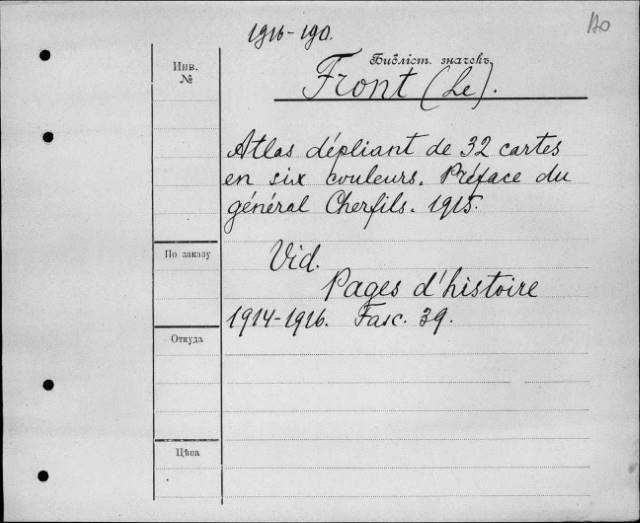 1916-190.
По
Библіот. значекъ
Инв.
№
Front (Le).
Atlas dépliant de 32 cartes
en six couleurs. Préface du
général Cherfils. 1915.
По заказу
Vid.
Pages d'histoire
1914-1916. Fasc. 39.
Откуда
Цѣна